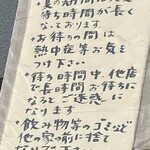 待ち時間が長く
なっております
・お待ちの間は
熱中症等お気を
つけ下さい
・待ち時間中、他店
で長時間お待ちに
なるとご迷惑に
なります
・飲み物等のゴミなど
他の家の前に捨て